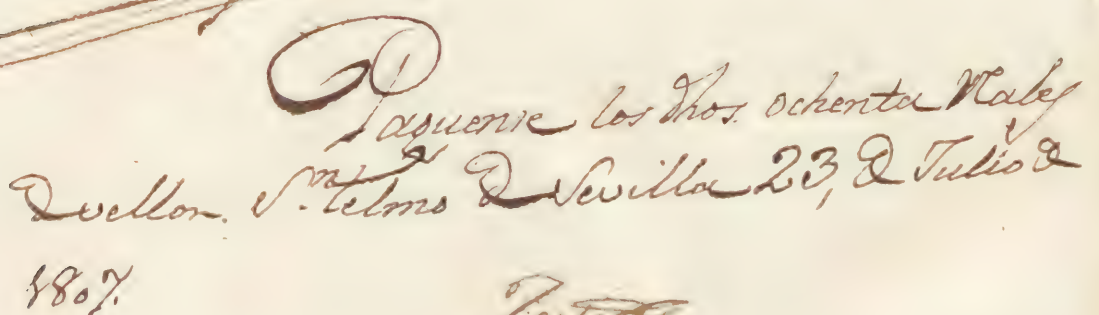 Paguense los dhos. ochenta Rales
de vellon. Sn. Telmo de Sevilla 23, de Julio de
1807.